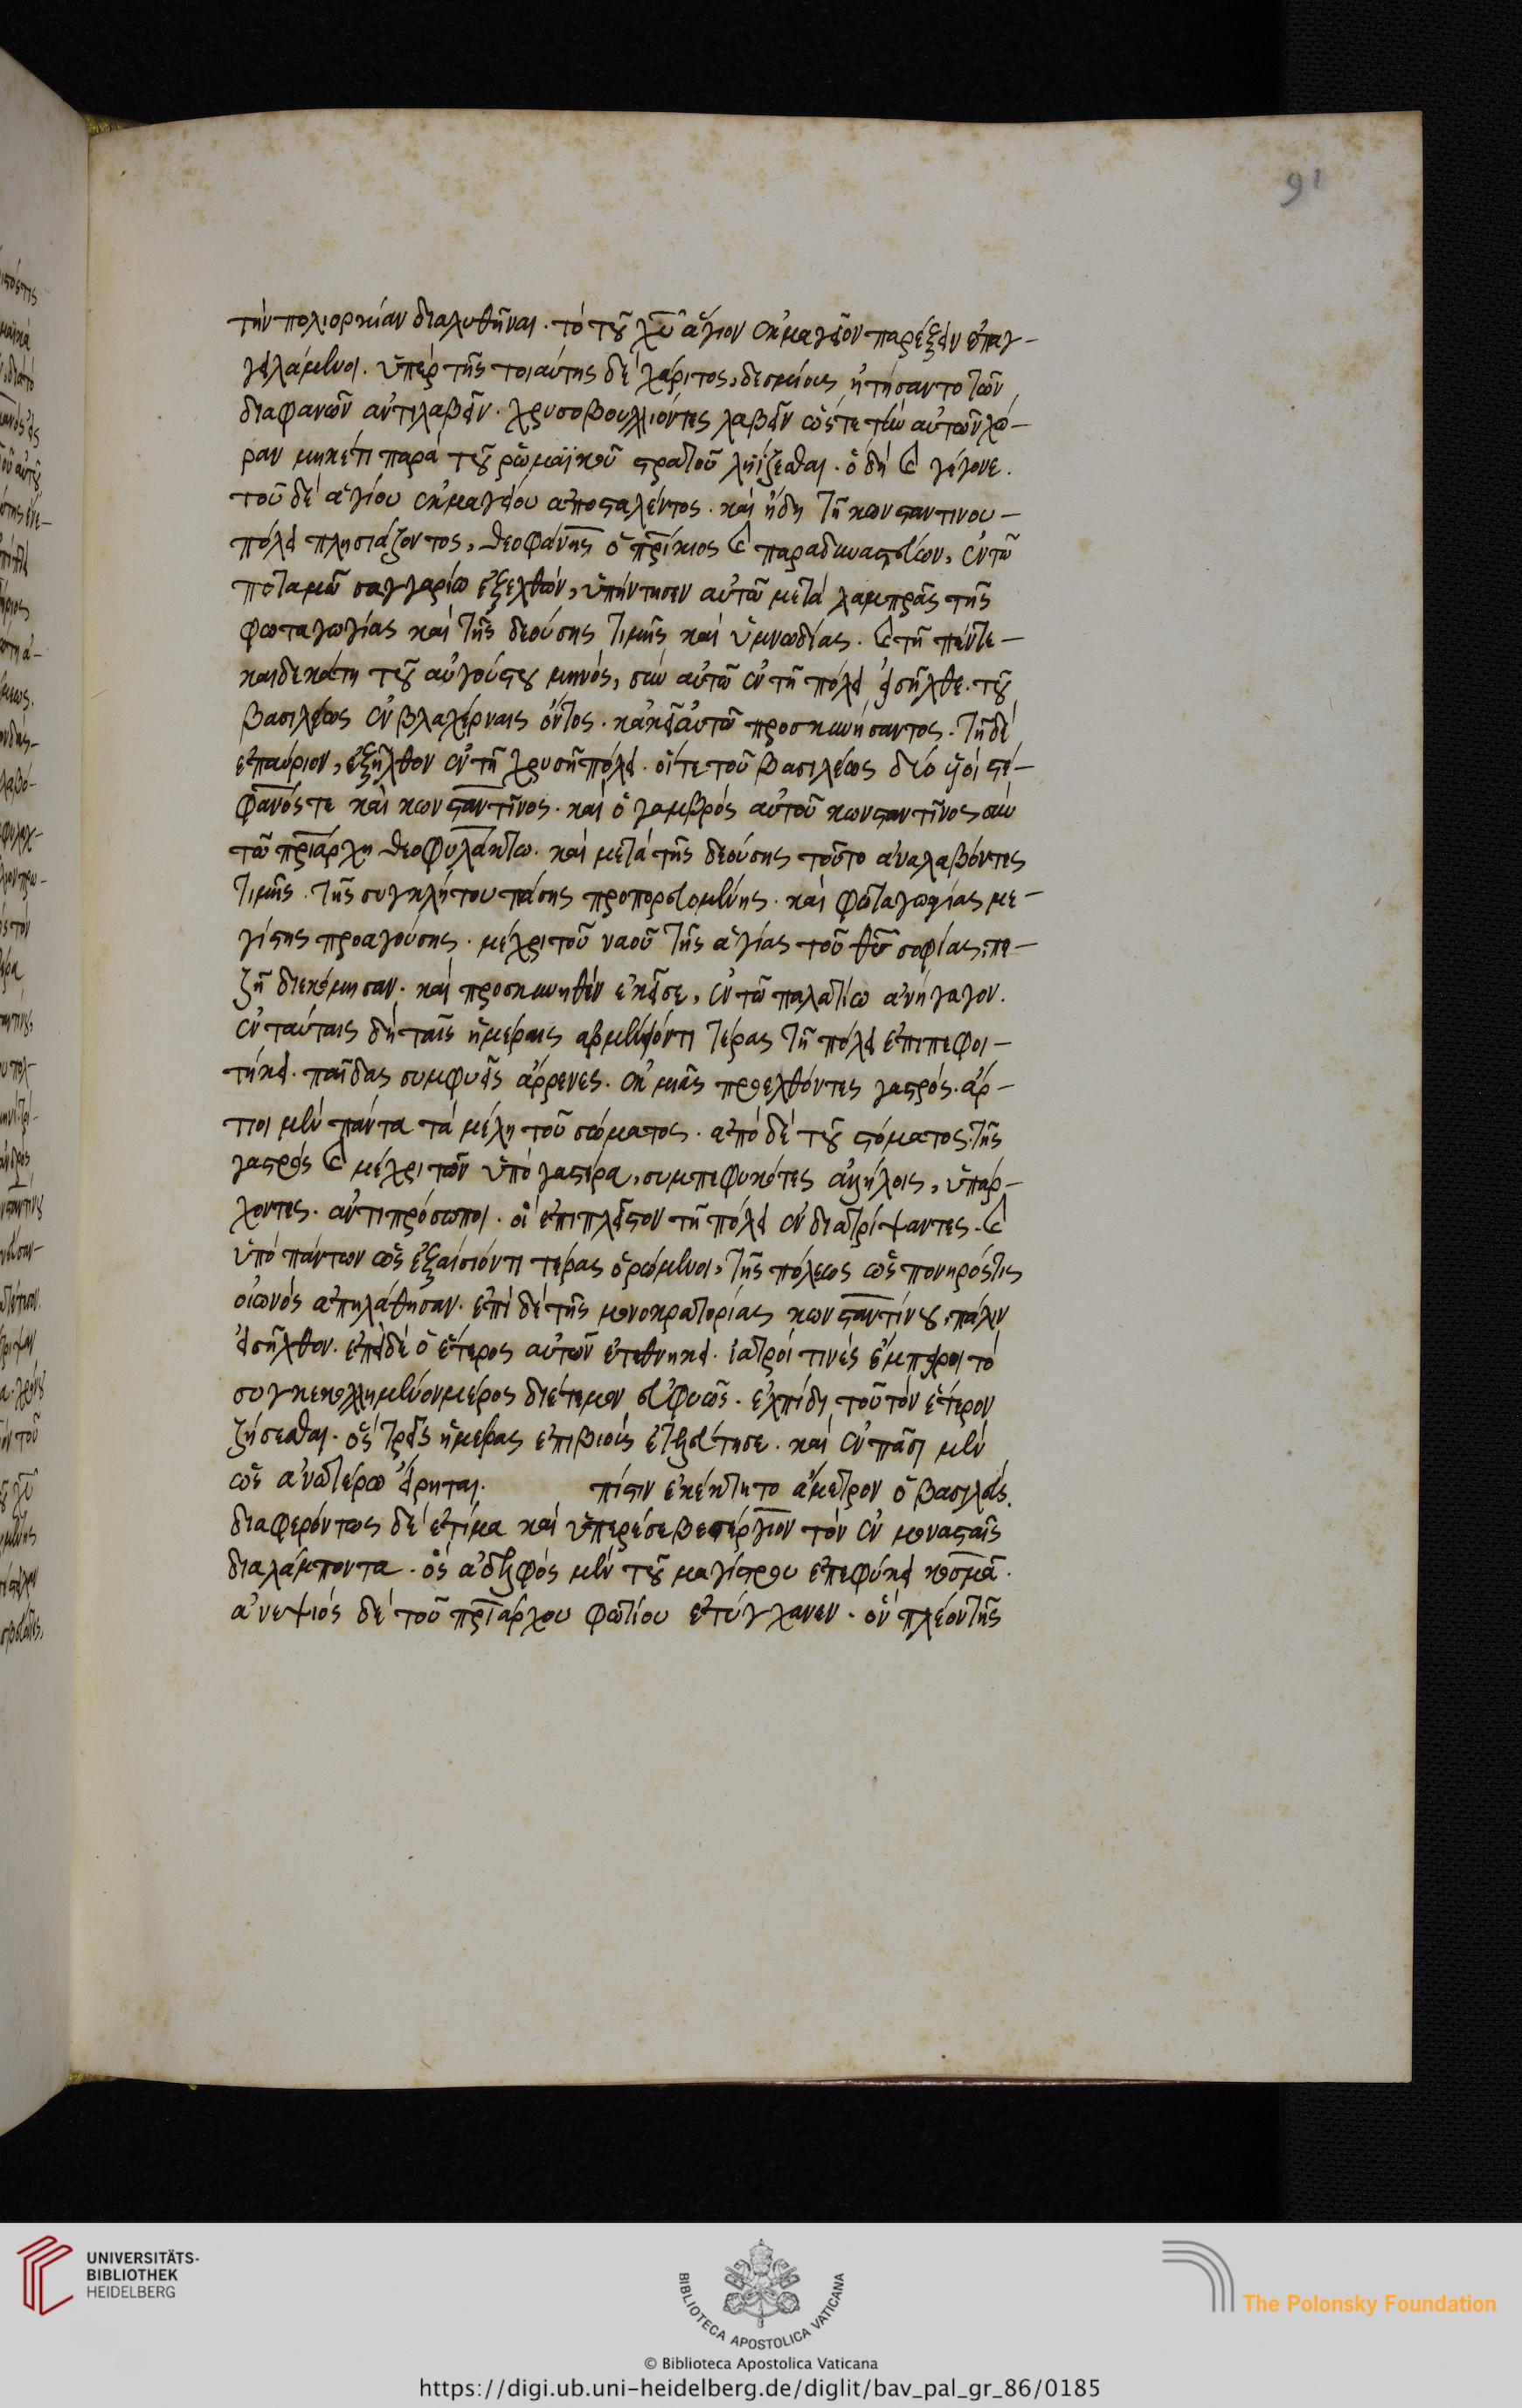 91
τὴν πολιορκίαν διαλυθῆναι. τὸ τοῦ χῦ ἅγιον ἐκμαγεῖον παρέξειν ἐπαγ-
γειλάμενοι. ὑπὲρ τῆς τοιαύτης δὲ χάριτος, δεσμίους ᾐτήσαντο τῶν
διαφανῶν ἀντιλαβεῖν. χρυσοβουλλιόντες λαβεῖν ὥστε τὴν αὐτῶν χώ-
ραν μηκέτι παρὰ τοῦ ῥωμαϊκοῦ στρατοῦ ληΐζεσθαι. ὃ δὴ καὶ γέγονε.
τοῦ δὲ ἁγίου ἐκμαγείου ἀποσταλέντος. καὶ ἤδη τῇ κωνσταντινου-
πόλει πλησιάζοντος, θεοφάνης ὁ πρίκιος καὶ παραδυναστεύων, ἐν τῶ
ποταμῶ σαγγαρίω ἐξελθών, ὑπήντησεν αὐτῶ μετὰ λαμπρᾶς τῆς
φωταγωγίας καὶ τῆς δεούσης τιμῆς καὶ ὑμνωδίας. καὶ τῇ πέντε-
καιδεκάτη τοῦ αὐγούστου μηνός, σὺν αὐτῶ ἐν τῇ πόλει εἰσῆλθε. τοῦ
βασιλέως ἐν βλαχέρναις ὄντος. κἀκεῖ αὐτῶ προσκυνήσαντος. τῇ δὲ
ἐπαύριον, ἐξῆλθον ἐν τῇ χρυσῇ πόλει. οἵ τε τοῦ βασιλέως δύο υἱοὶ στέ-
φανός τε καὶ κωνσταντῖνος. καὶ ὁ γαμβρὸς αὐτοῦ κωνσταντῖνος σὺν
τῶ πριάρχη θεοφυλάκτω. καὶ μετὰ τῆς δεούσης τοῦτο ἀναλαβόντες
τιμῆς. τῆς συγκλήτου πάσης προπορευομένης. καὶ φωταγωγίας με-
γίστης προαγούσης. μέχρι τοῦ ναοῦ τῆς ἁγίας τοῦ θῦ σοφίας, πε-
ζῇ διεκόμησαν. καὶ προσκυνηθὲν ἐκεῖσε, ἐν τῶ παλατίω ἀνήγαγον.
ἐν ταύταις δὴ ταῖς ἡμέραις τέρας τῇ πόλει ἐπιπεφοι-
τήκει. παῖδας συμφυεῖς ἄρρενες. ἐκ μιᾶς προελθόντες γαστρός. ἄρ-
τιοι μὲν πάντα τὰ μέλη τοῦ σώματος. ἀπὸ δὲ τοῦ στόματος τῆς
γαστρὸς καὶ μέχρι τῶν ὑπὸ γαστέρα, συμπεφυκότες ἀλλήλοις, ὑπάρ-
χοντες. ἀντιπρόσωποι. οἱ ἐπιπλεῖστον τῇ πόλει ἐνδιατρίψαντες. καὶ
ὑπὸ πάντων ὡς ἐξαίσιόν τι τέρας ὁρώμενοι, τῆς πόλεως ὡς πονηρός τις
οἰωνὸς ἀπηλάθησαν. ἐπὶ δὲ τῆς μονοκρατορίας κωνσταντίνου, πάλιν
εἰσῆλθον. ἐπεὶ δὲ ὁ ἕτερος αὐτῶν ἐτεθνήκει. ἰατροί τινὲς ἔμπειροι τὸ
συγκεκολλημένον μέρος διέτεμον εὐφυῶς. ἐλπίδι τοῦ τὸν ἕτερον
ζήσεσθαι. ὃς τρεῖς ἡμέρας ἐπιβιοὺς ἐτελεύτησε. καὶ ἐν πᾶσι μὲν
ὡς ἀνωτέρω εἴρηται. πίστιν ἐκέκτητο ἄμετρον ὁ βασιλεύς.
διαφερόντως δὲ ἐτίμα καὶ ὑπερέσεβε σέργιον τὸν ἐν μονασταῖς
διαλάμποντα. ὃς ἀδελφὸς μὲν τοῦ μαγίστρου ἐπεφύκει κοσμᾶ.
ἀνεψιὸς δὲ τοῦ πριάρχου φωτίου ἐτύγχανεν. ὃν πλέον τῆς
UNIVERSITÄTS-
BIBLIOTHEK
HEIDELBERG
BIBLIOTECA APOSTOLICA VATICANA
© Biblioteca Apostolica Vaticana
The Polonsky Foundation
https://digi.ub.uni-heidelberg.de/diglit/bav_pal_gr_86/0185